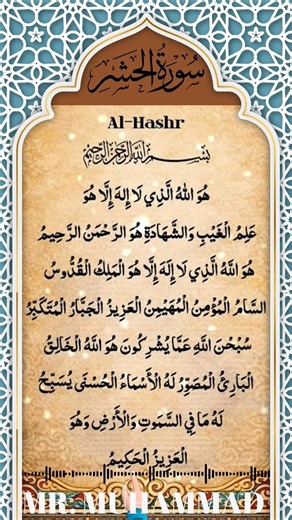 سُورَةُ الحَشْر
Al-Hashr
بِسْمِ اللَّهِ الرَّحْمَنِ الرَّحِيمِ
هُوَ اللَّهُ الَّذِي لَا إِلَهَ إِلَّا هُوَ
عَلِمُ الْغَيْبِ وَالشَّهَادَةِ هُوَ الرَّحْمَنُ الرَّحِيمُ
هُوَ اللَّهُ الَّذِي لَا إِلَهَ إِلَّا هُوَ الْمَلِكُ الْقُدُّوسُ
السَّامُ الْمُؤْمِنُ الْمُهَيْمِنُ الْعَزِيزُ الْجَبَّارُ الْمُتَكَبِّرُ
سُبْحْنَ اللَّهِ عَمَّا يُشْرِكُونَ هُوَ اللَّهُ الْخَالِقُ
الْبَارِئُ الْمُصَوِّرُ لَهُ الْأَسْمَاءُ الْحُسْنَى يُسَبِّحُ
لَهُ مَا فِي السَّمَوتِ وَالْأَرْضِ وَهُوَ
الْعَزِيزُ الْحَكِيمُ
MR. MUHAMMAD